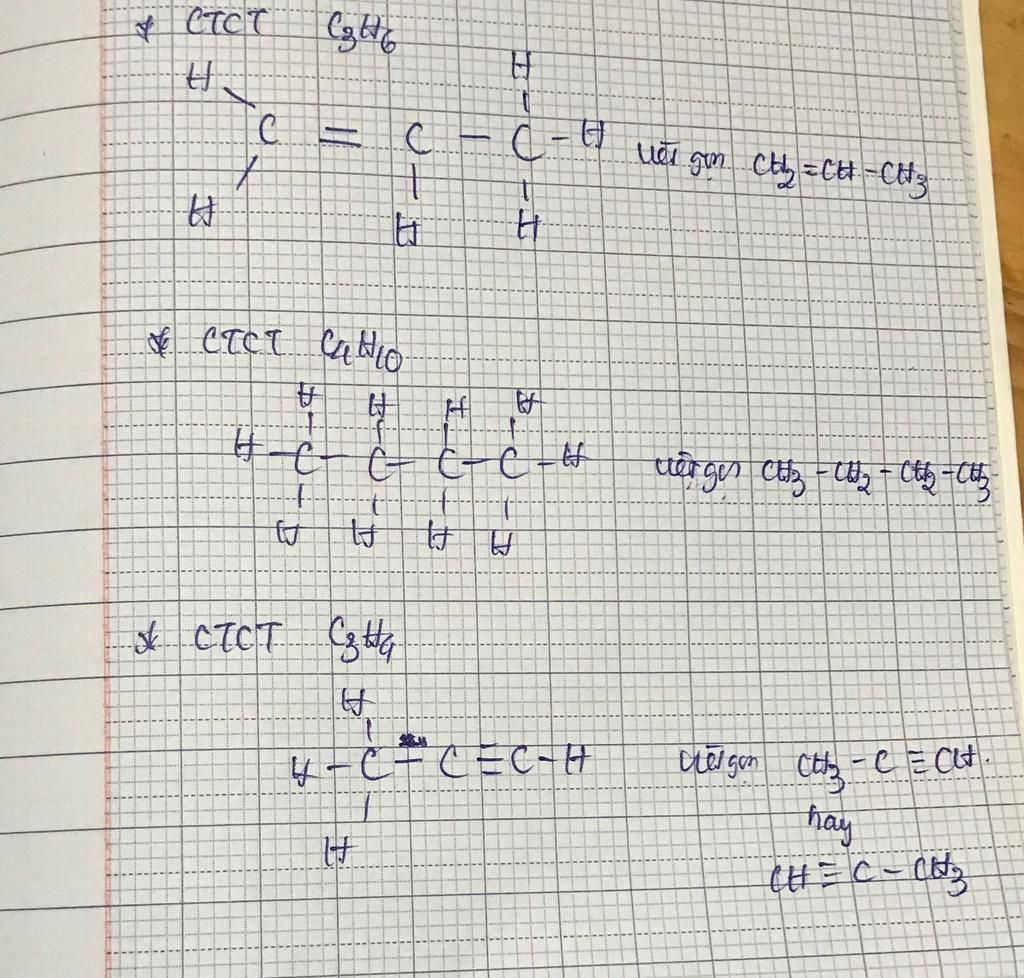 * CTCT C₃H₆
H H
C = C - C - H viết gọn CH₂=CH-CH₃
H H H
* CTCT C₄H₁₀
H H H H
H-C-C-C-C-H viết gọn CH₃-CH₂-CH₂-CH₃
H H H H
* CTCT C₃H₄
H
H-C-C≡C-H viết gọn CH₃-C≡CH.
H hay
CH≡C-CH₃